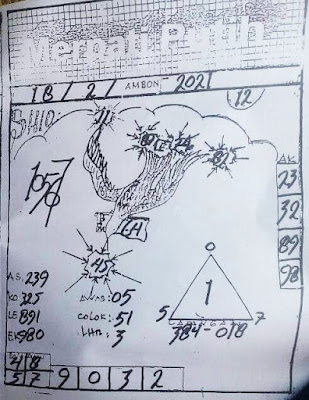 Merpati Putih
18 / 2 / AMBON 2021
12
SHIO:
21
82
1657
AK
23
32
89
98
45
0
1
5 7
384-018
AS. 239
KO 325
LE 891
EK 980
AWAS: 05
COLOK: 51
LHR: 3
48
57 9 0 3 2